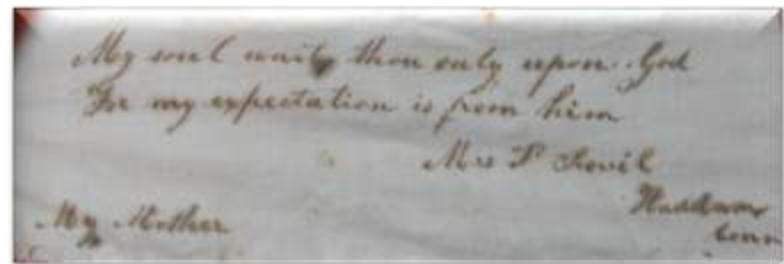 My soul wait thou only upon God
For my expectation is from him
Mrs P Scovil
Haddam
Conn
My Mother